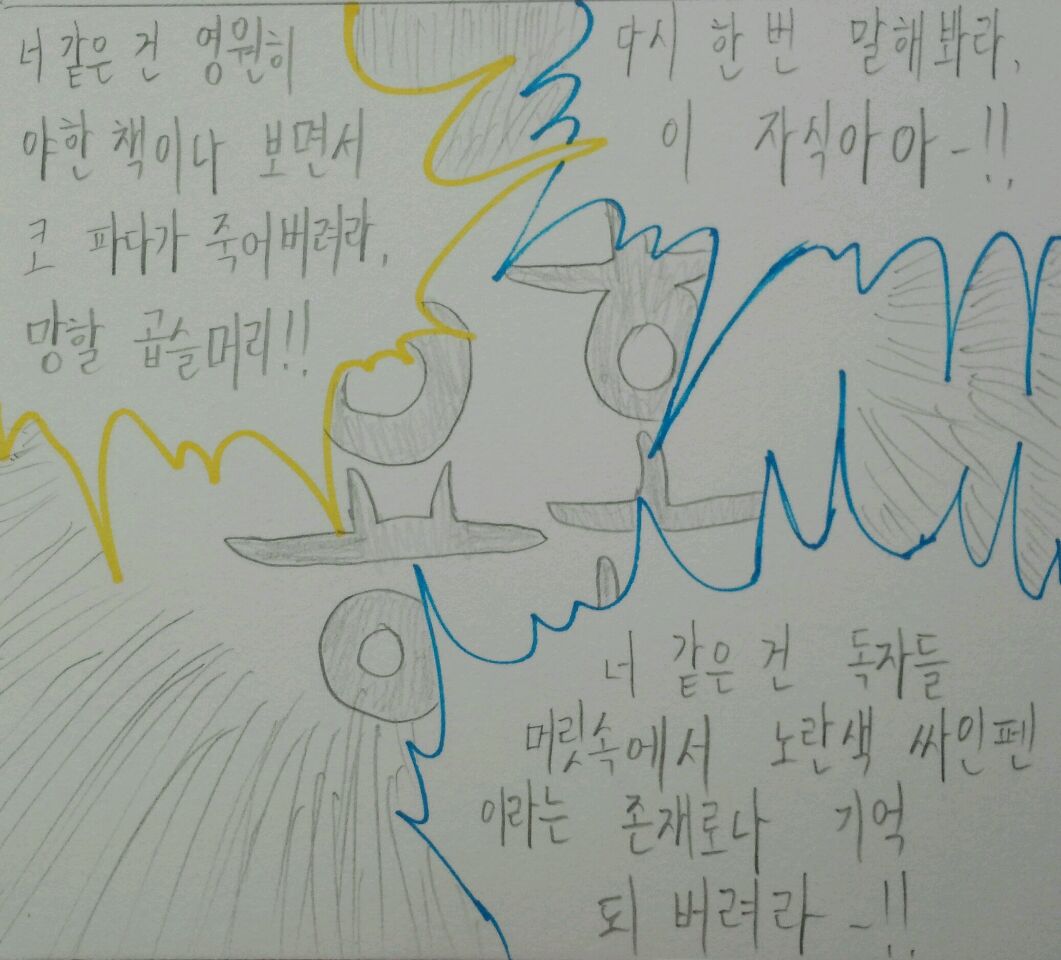 너 같은 건 영원히
야한 책이나 보면서
코 파다가 죽어버려라,
망할 곱슬머리!!
다시 한 번 말해봐라,
이 자식아아-!!
너 같은 건 독자들
머릿속에서 노란색 싸인펜
이라는 존재로나 기억
되 버려라-!!